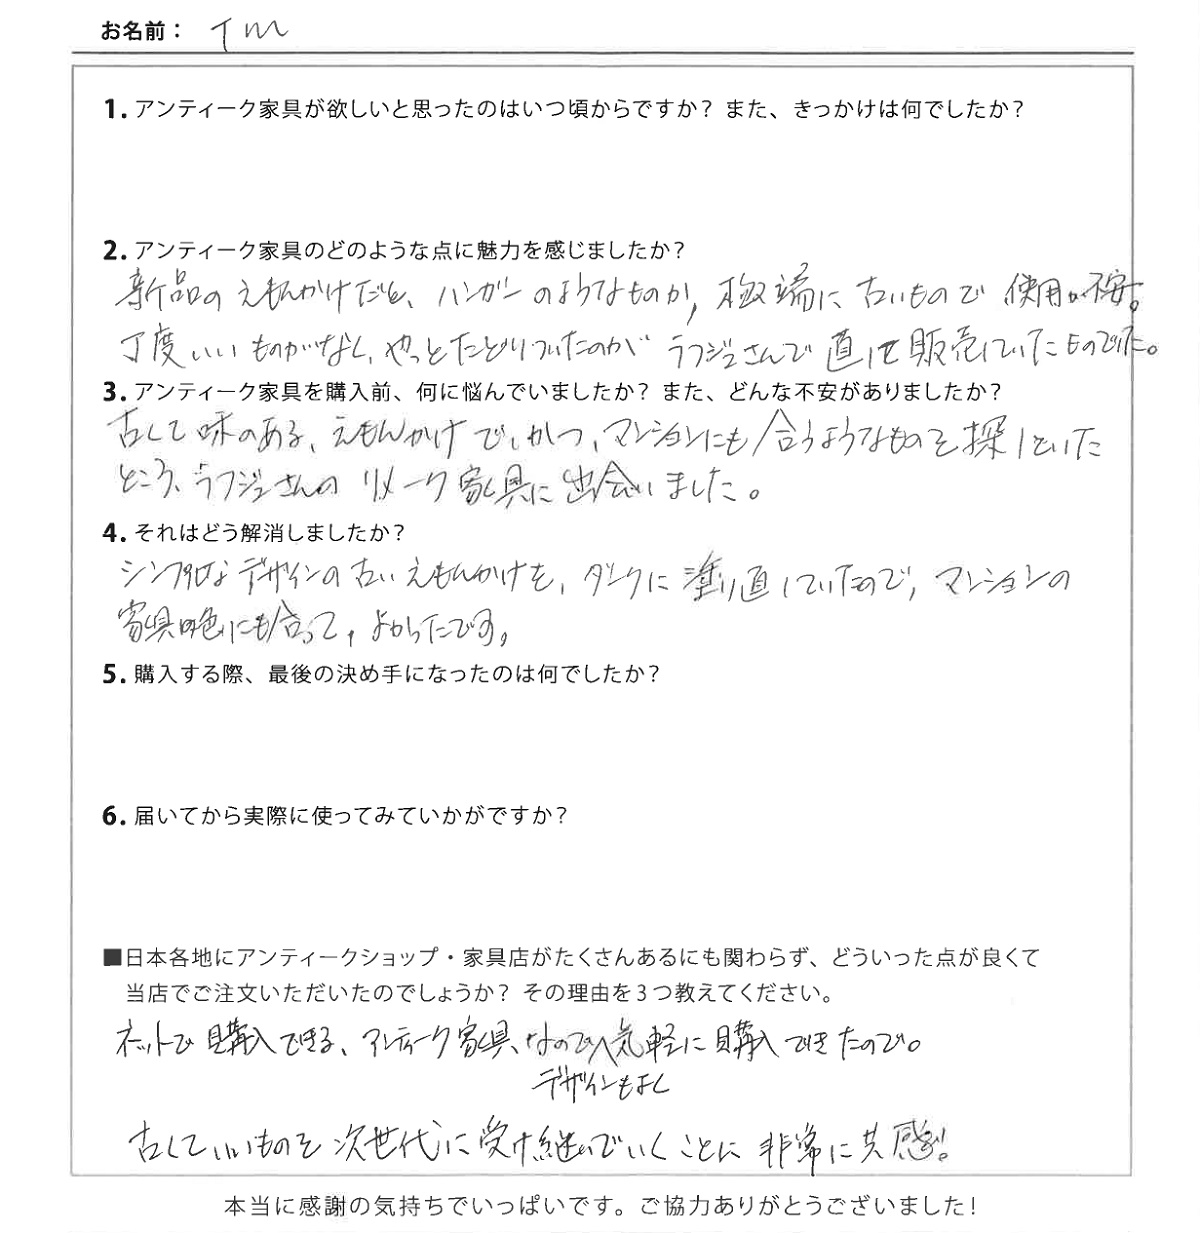 お名前： T m
1. アンティーク家具が欲しいと思ったのはいつ頃からですか？ また、きっかけは何でしたか？
2. アンティーク家具のどのような点に魅力を感じましたか？
新品のえもんかけだと、ハンガーのようなものか, 極端に古いもので使用が不安。
丁度いいものがなく、やっとたどりついたのが ラフジュさんで直して販売していたものでした。
3. アンティーク家具を購入前、何に悩んでいましたか？ また、どんな不安がありましたか？
古くて味のある、えもんかけで、かつ、マンションにも合うようなものを探していた
ところ、ラフジュさんのリメーク家具に出会いました。
4. それはどう解消しましたか？
シンプルなデザインの古いえもんかけを、ダークに塗り直していたので, マンションの
家具の色にも合って, よかったです。
5. 購入する際、最後の決め手になったのは何でしたか？
6. 届いてから実際に使ってみていかがですか？
■日本各地にアンティークショップ・家具店がたくさんあるにも関わらず、どういった点が良くて
当店でご注文いただいたのでしょうか？ その理由を3つ教えてください。
ネットで購入できる、アンティーク家具、なので、気軽に購入できたので。
デザインもよく
古くていいものを次世代に受け継いでいくことに非常に共感！
本当に感謝の気持ちでいっぱいです。ご協力ありがとうございました！